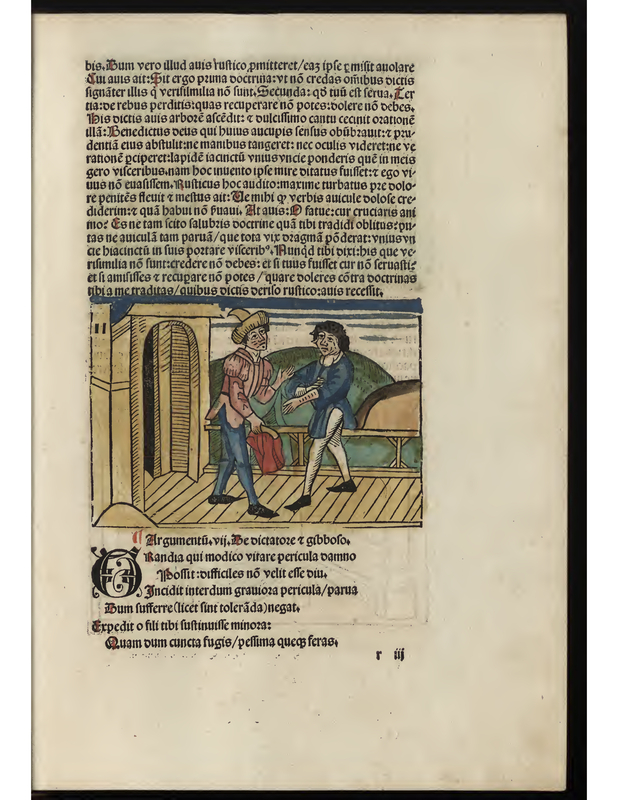 bis. Dum vero illud auis rustico ꝓmitteret/eaꝫ ipse ꝑmisit auolare
Cui auis ait: Sit ergo prima doctrina: vt nō credas om̄ibus dictis
signāter illis q̄ verisimilia nō sunt. Secunda: qđ tuū est serua. Ter
tia: de rebus perditis: quas recuperare nō potes: dolere nō debes.
His dictis auis arborē ascēdit: ⁊ dulcissimo cantu cecinit orationē
illā: Benedictus deus qui huius aucupis sensus obūbrauit: ⁊ pru-
dentiā eius abstulit: ne manibus tangeret: nec oculis videret: ne ve
rationē ꝑciperet: lapidē iacinctū vnius vncie ponderis quē in meis
gero visceribus. nam hoc inuento ipse mire ditatus fuisset: ⁊ ego vi-
uus nō euasissem. Rusticus hoc audito: maxime turbatus pre dolo-
re penitēs fleuit ⁊ mestus ait: Ue mihi ꝙ verbis auicule dolose cre-
diderim: ⁊ quā habui nō ẜuaui. At auis: O fatue: cur cruciaris ani
mo? Es ne tam scito salubris doctrine quā tibi tradidi oblitus: pu-
tas ne auiculā tam paruā/que tota vix dragmā pōderat: vnius vn
cie hiacinctū in suis portare visceribꝰ. Nunqđ tibi dixi: his que ve-
risimilia nō sunt: credere nō debes: et si tuus fuisset cur nō seruasti:
et si amisisses ⁊ recupare nō potes/quare doleres cōtra doctrinas
tibi a me traditas/quibus dictis deriso rustico: auis recessit.
Argumentū. vij. De dictatore ⁊ gibboso.
Randia qui modico vitare pericula damno
Possit: difficiles nō velit esse diu.
Incidit interdum grauiora pericula/parua
Dum sufferre (licet sint tolerāda) negat.
Expedit o fili tibi sustinuisse minora:
Quam dum cuncta fugis/pessima queqꝫ feras.
r iij